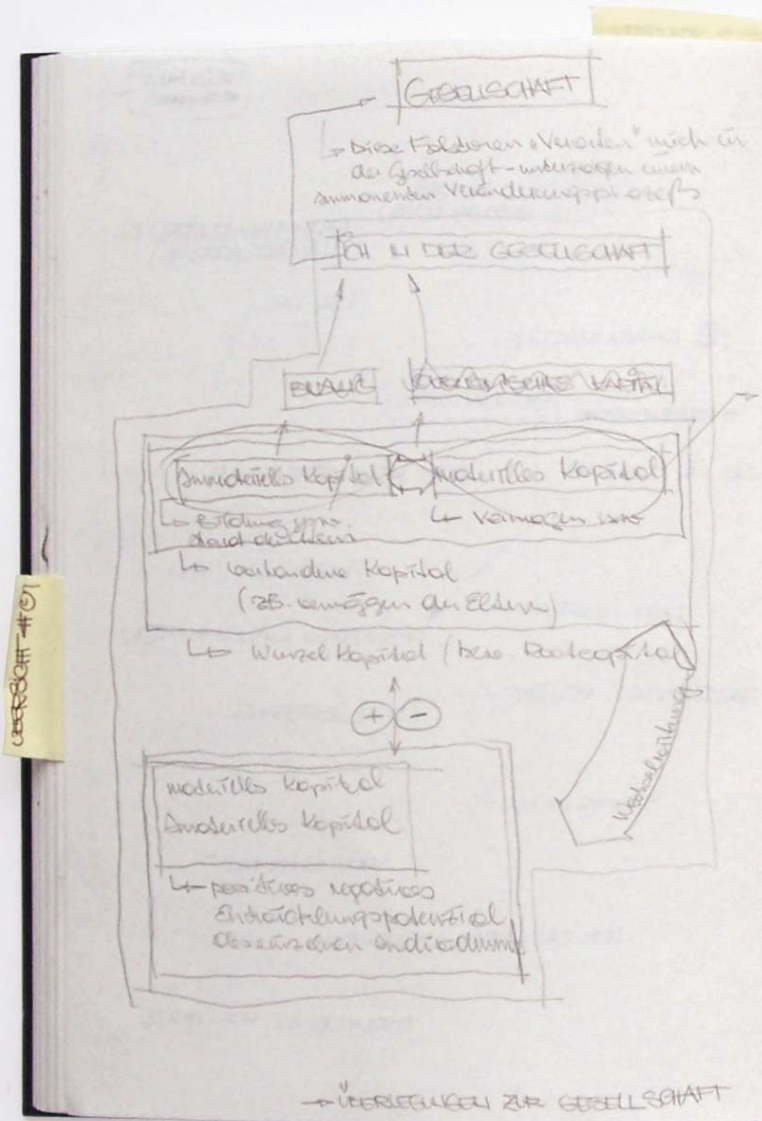 GESELLSCHAFT
↳ Diese Faktoren "verorten" mich in
der Gesellschaft - unterzogen einem
immanenten Veränderungsprozeß
ICH IN DER GESELLSCHAFT
KAPITAL
immaterielles Kapital
materielles Kapital
↳ Bildung usw.
↳ Vermögen usw
↳ vorhandene Kapital
(zB. vermögen der Eltern)
↳ Wurzel Kapital (bzw. Rootcapital)
+ -
Wechselwirkung
materielles Kapital
Immaterielles Kapital
↳ positives negatives
Entwicklungspotential
des einzelnen Individuums
ÜBERSICHT #01
→ ÜBERLEGUNGEN ZUR GESELLSCHAFT